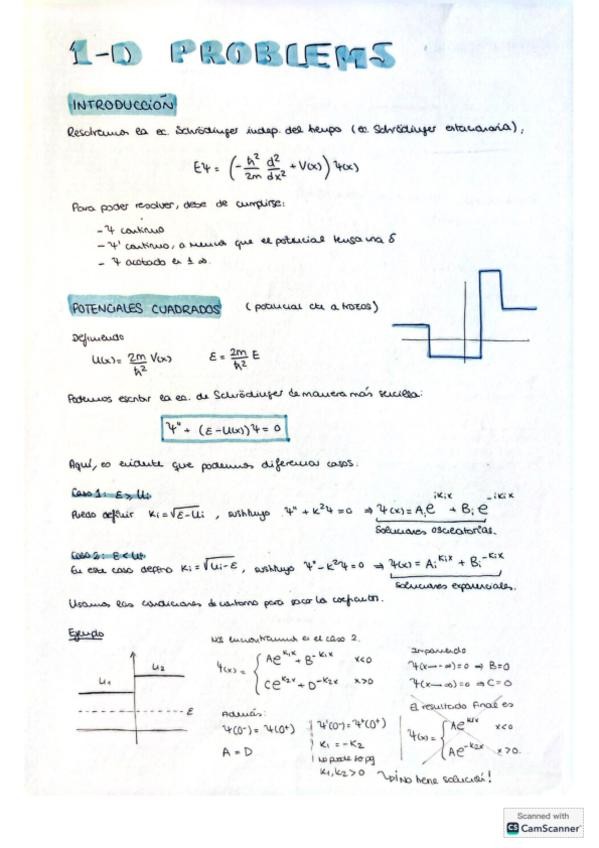 1-D PROBLEMS
INTRODUCCIÓN
Resolvemos la ec. Schrödinger indep. del tiempo (ec Schrödinger estacionaria),
Eψ = (-ħ²/2m d²/dx² + V(x)) ψ(x)
Para poder resolver, debe de cumplirse:
- ψ continuo
- ψ' continuo, a menos que el potencial tenga una δ
- ψ acotado en ± ∞.
POTENCIALES CUADRADOS (potencial cte a trozos)
Definiendo
U(x) = 2m/ħ² V(x) ε = 2m/ħ² E
Podemos escribir la ec. de Schrödinger de manera más sencilla:
ψ'' + (ε - U(x)) ψ = 0
Aquí, es evidente que podemos diferenciar casos.
Caso 1: ε > Ui
Puedo definir Ki = √ε-Ui, sustituyo ψ'' + K²ψ = 0 ⇒ ψ(x) = Ai e^iKix + Bi e^-iKix
Soluciones oscilatorias.
Caso 2: ε < Ui
En este caso defino Ki = √Ui-ε, sustituyo ψ'' - K²ψ = 0 ⇒ ψ(x) = Ai^Kix + Bi^-Kix
Soluciones exponenciales.
Usamos las condiciones de contorno para sacar los coeficientes.
Ejemplo
U1
U2
ε
Nos encontramos en el caso 2.
ψ(x) = { Ae^K1x + B^-K1x x<0
Ce^K2x + D^-K2x x>0
Además:
ψ(0⁻) = ψ(0⁺)
A = D
ψ'(0⁻) = ψ'(0⁺)
K1 = -K2
No puede ser pq
K1, K2 > 0 ¡No tiene solución!
Imponiendo
ψ(x→-∞) = 0 ⇒ B=0
ψ(x→∞) = 0 ⇒ C=0
El resultado final es
ψ(x) = { Ae^K1x x<0
Ae^-K2x x>0.
Scanned with
CS CamScanner